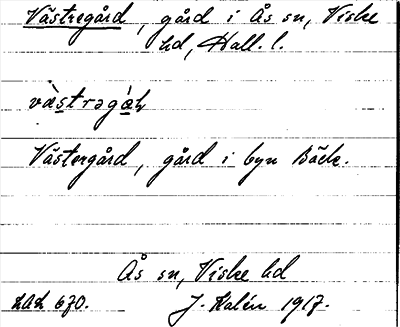 Västregård, gård i Ås sn, Viske
hd, Hall. l.
Västergård, gård i byn Bäck.
Ås sn, Viske hd
J. Kalén 1917.
670.